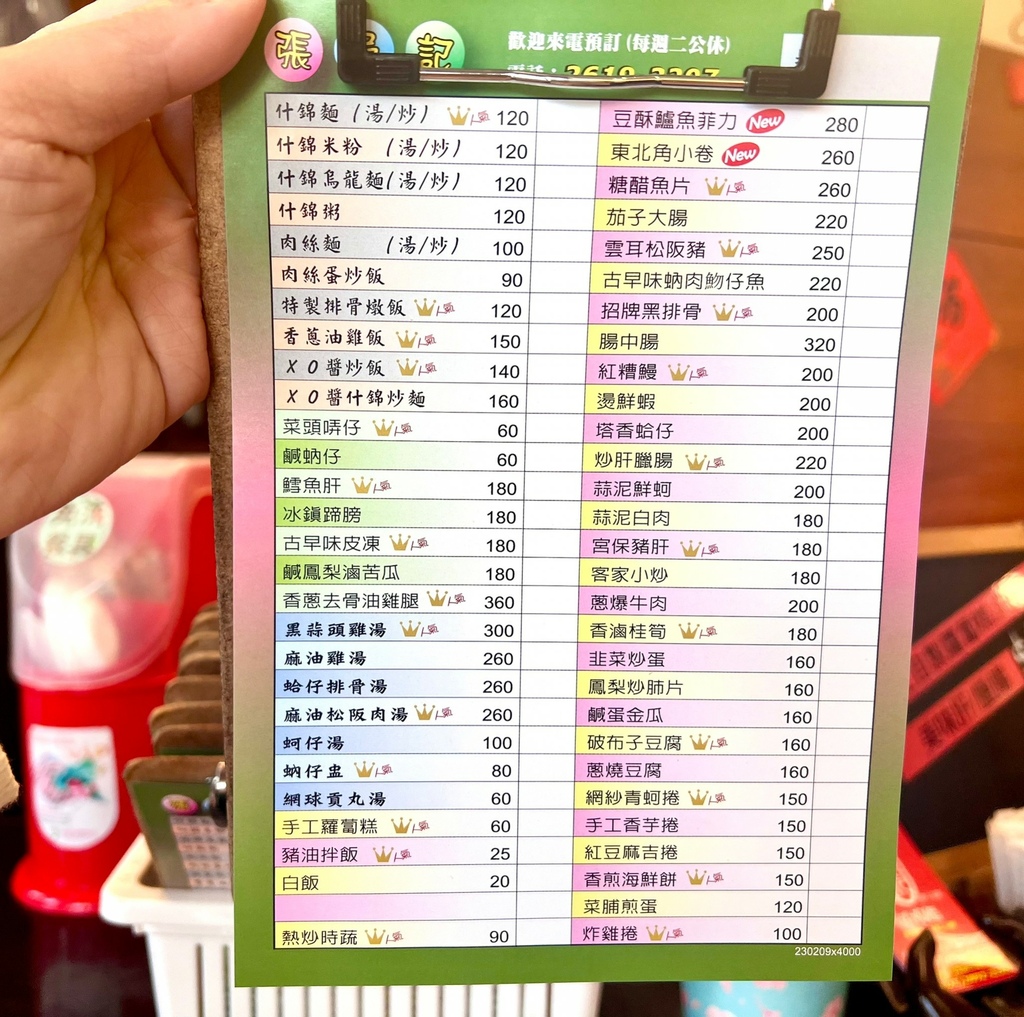 張 記
歡迎來電預訂(每週二公休)
什錦麵 (湯/炒) 人氣 120
什錦米粉 (湯/炒) 120
什錦烏龍麵(湯/炒) 120
什錦粥 120
肉絲麵 (湯/炒) 100
肉絲蛋炒飯 90
特製排骨燉飯 人氣 120
香蔥油雞飯 人氣 150
XO醬炒飯 人氣 140
XO醬什錦炒麵 160
菜頭哢仔 人氣 60
鹹蚋仔 60
鱈魚肝 人氣 180
冰鎮蹄膀 180
古早味皮凍 人氣 180
鹹鳳梨滷苦瓜 180
香蔥去骨油雞腿 人氣 360
黑蒜頭雞湯 人氣 300
麻油雞湯 260
蛤仔排骨湯 260
麻油松阪肉湯 人氣 260
蚵仔湯 100
蚋仔盅 人氣 80
網球貢丸湯 60
手工蘿蔔糕 人氣 60
豬油拌飯 人氣 25
白飯 20
熱炒時蔬 人氣 90
豆酥鱸魚菲力 New 280
東北角小卷 New 260
糖醋魚片 人氣 260
茄子大腸 220
雲耳松阪豬 人氣 250
古早味蚋肉魩仔魚 220
招牌黑排骨 人氣 200
腸中腸 320
紅糟鰻 人氣 200
燙鮮蝦 200
塔香蛤仔 200
炒肝臘腸 人氣 220
蒜泥鮮蚵 200
蒜泥白肉 180
宮保豬肝 人氣 180
客家小炒 180
蔥爆牛肉 200
香滷桂筍 人氣 180
韭菜炒蛋 160
鳳梨炒肺片 160
鹹蛋金瓜 160
破布子豆腐 人氣 160
蔥燒豆腐 160
網紗青蚵捲 人氣 150
手工香芋捲 150
紅豆麻吉捲 150
香煎海鮮餅 人氣 150
菜脯煎蛋 120
炸雞捲 人氣 100
230209x4000